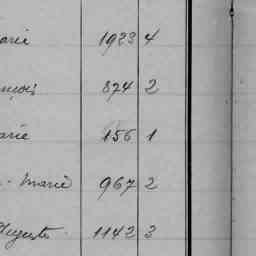 arie 1923 4
ançois 874 2
arie 156 1
- Marie 967 2
Auguste 1142 3